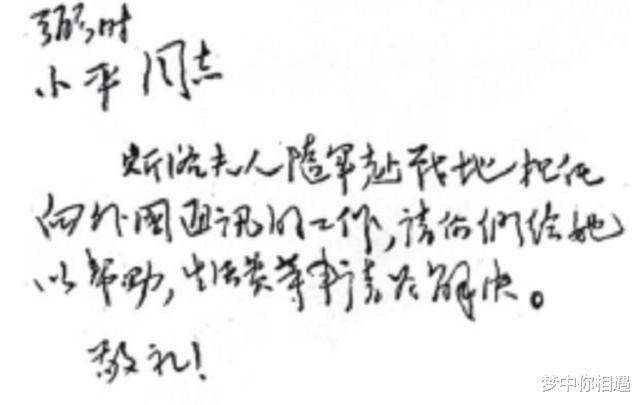 弼时
小平 同志
史沫特夫人随军赴战地担任
向外国通讯的工作,请你们给她
以帮助,生活费等事请为解决。
敬礼!
梦中你相遇